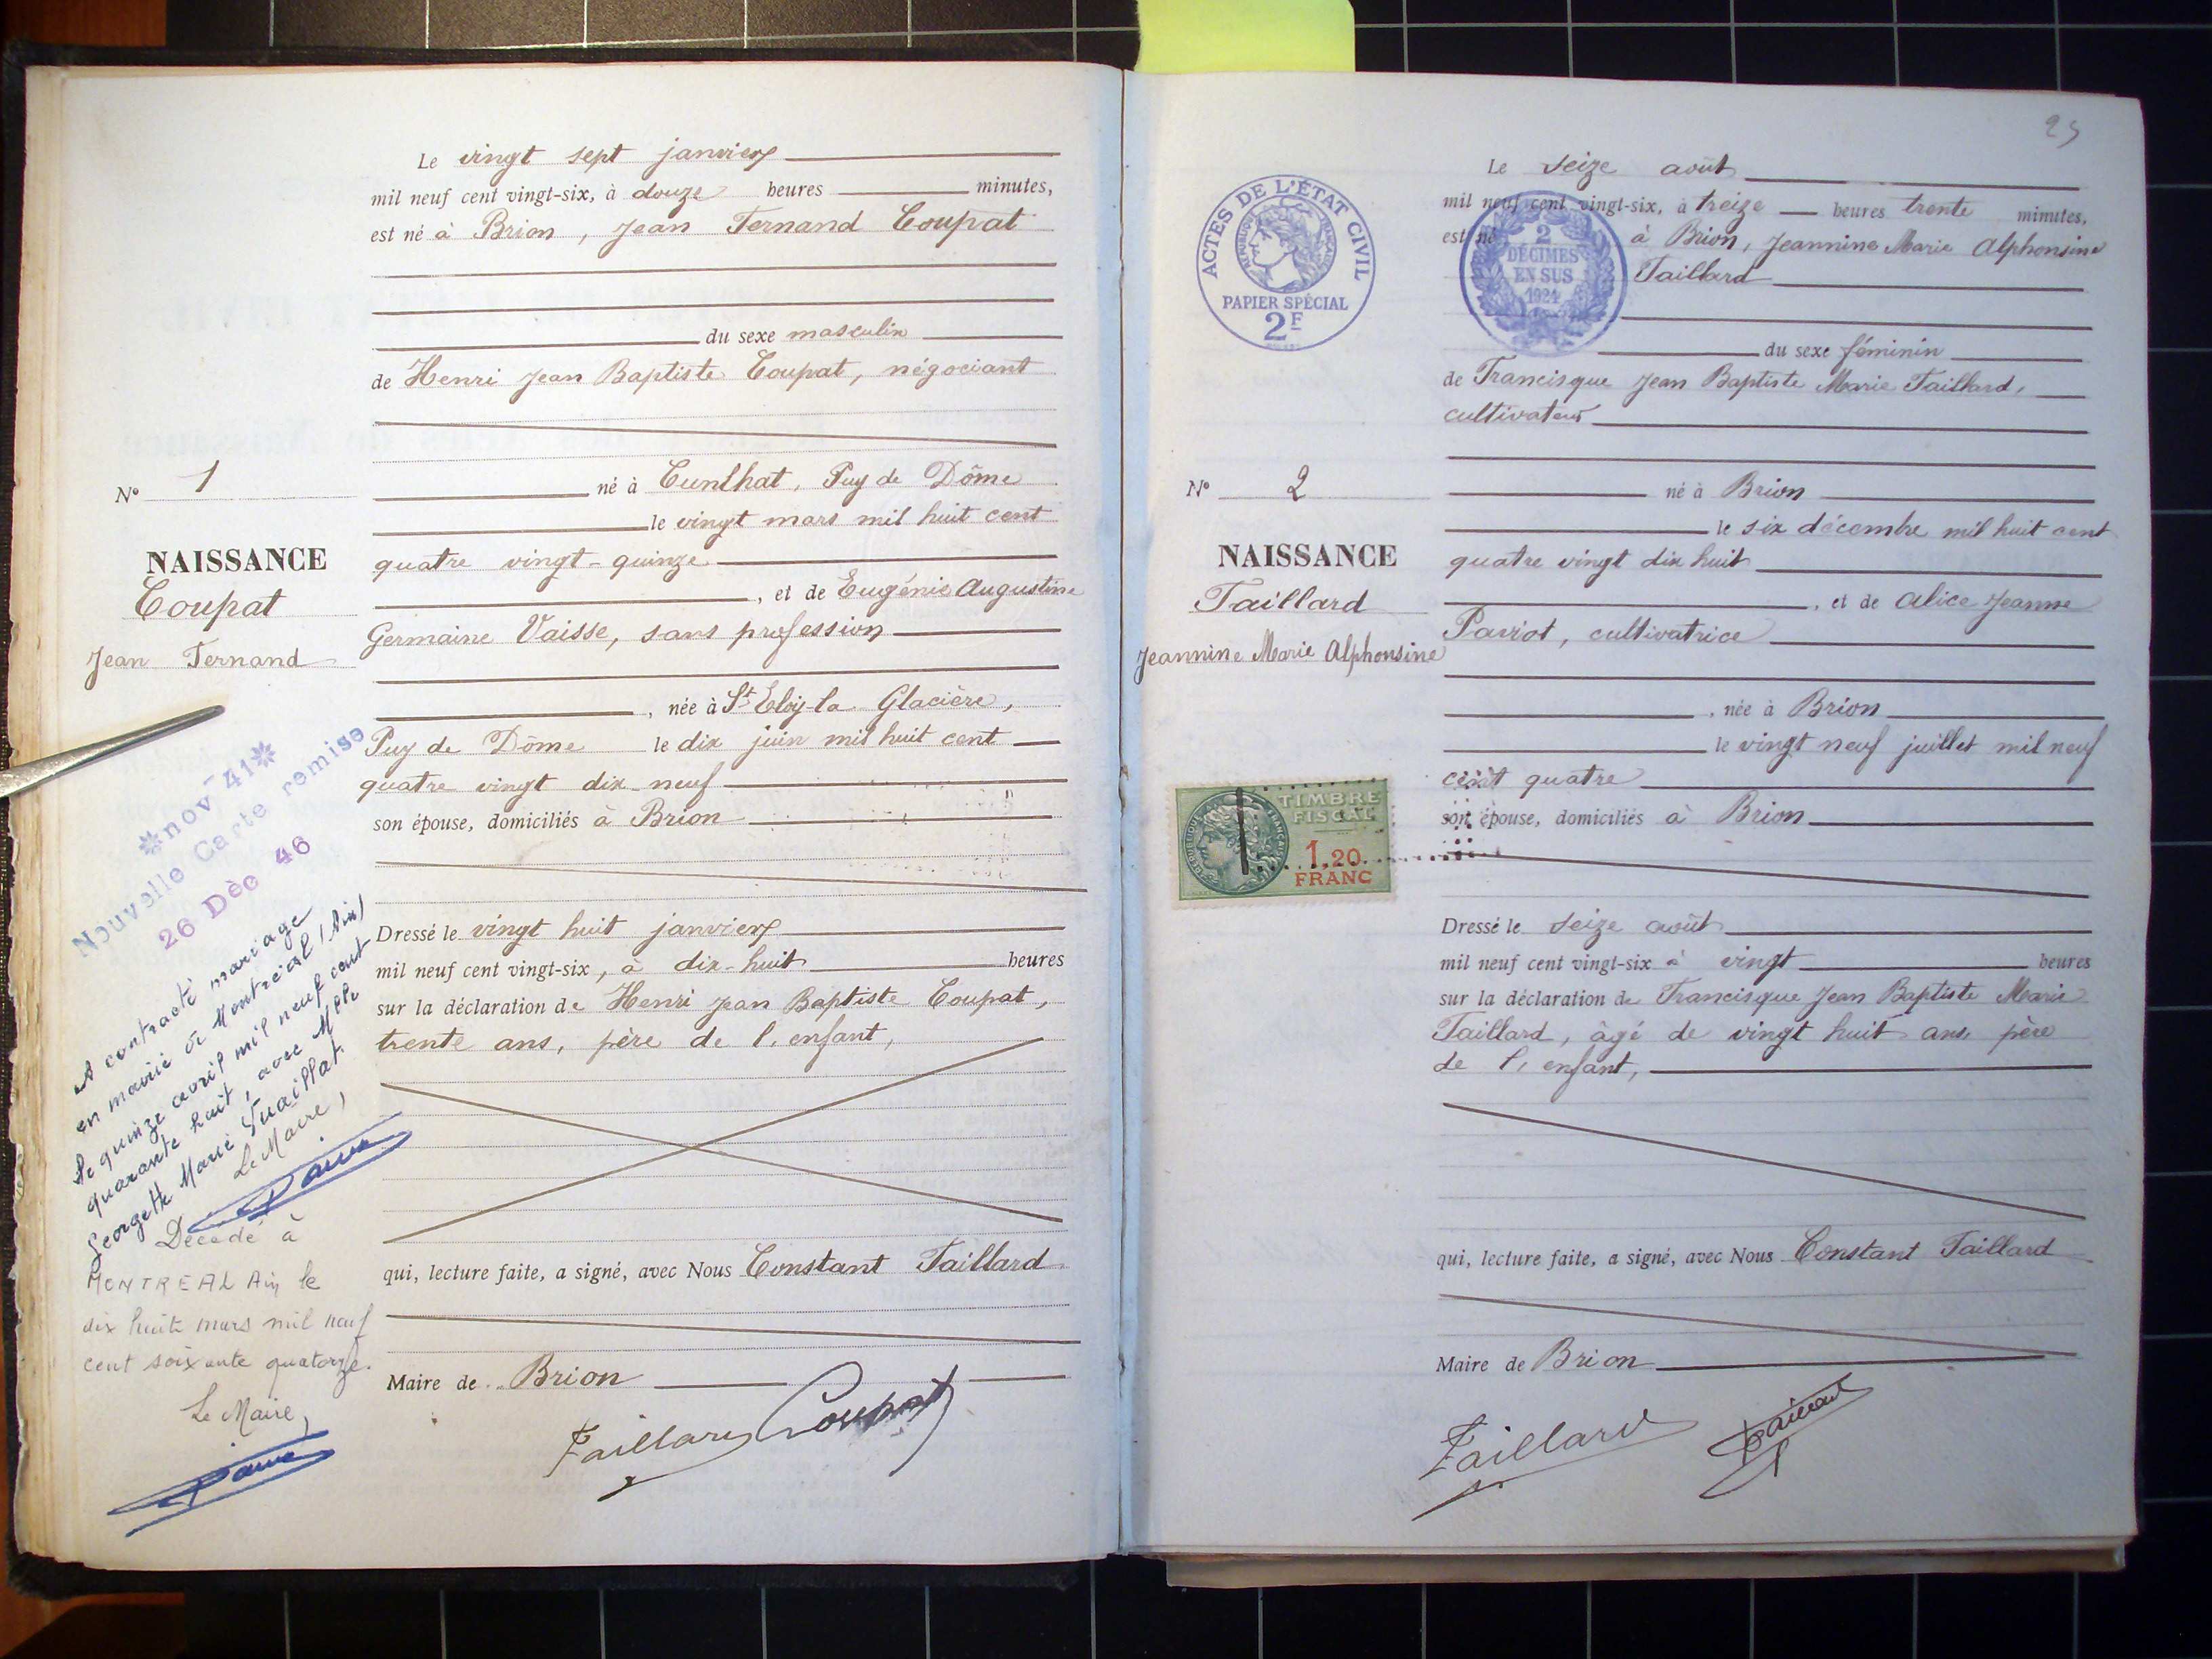 Le vingt sept janvier
mil neuf cent vingt-six, à douze heures minutes,
est né à Brion, Jean Fernand Coupat
du sexe masculin
de Henri Jean Baptiste Coupat, négociant
né à Cunlhat, Puy de Dôme
le vingt mars mil huit cent
quatre vingt-quinze
, et de Eugénie Augustine
Germaine Vaisse, sans profession
, née à St Eloy-la Glacière,
Puy de Dôme le dix juin mil huit cent
quatre vingt dix-neuf
son épouse, domiciliés à Brion
Dressé le vingt huit janvier
mil neuf cent vingt-six, à dix-huit heures
sur la déclaration de Henri Jean Baptiste Coupat,
trente ans, père de l'enfant,
qui, lecture faite, a signé, avec Nous Constant Taillard
Maire de Brion
Taillard Coupat
N° 1
NAISSANCE
Coupat
Jean Fernand
*nov-41*
Nouvelle Carte remise
26 Déc 46
A contracté mariage
en mairie de Montréal (Ain)
le quinze avril mil neuf cent
quarante huit, avec Melle
Georgette Marie Tuaillat
Le Maire,
Décédé à
MONTREAL Ain le
dix huit mars mil neuf
cent soixante quatorze.
Le Maire,
25
Le seize août
mil neuf cent vingt-six, à treize heures trente minutes,
est né à Brion, Jeannine Marie Alphonsine
Taillard
du sexe féminin
de Francisque Jean Baptiste Marie Taillard,
cultivateur
né à Brion
le six décembre mil huit cent
quatre vingt dix huit
, et de Alice Jeanne
Paviot, cultivatrice
, née à Brion
le vingt neuf juillet mil neuf
cent quatre
son épouse, domiciliés à Brion
Dressé le seize août
mil neuf cent vingt-six à vingt heures
sur la déclaration de Francisque Jean Baptiste Marie
Taillard, âgé de vingt huit ans, père
de l'enfant,
qui, lecture faite, a signé, avec Nous Constant Taillard
Maire de Brion
Taillard Taillard
ACTES DE L'ÉTAT CIVIL
RÉPUBLIQUE FRANÇAISE
PAPIER SPÉCIAL
2F
2
DÉCIMES
EN SUS
1924
N° 2
NAISSANCE
Taillard
Jeannine Marie Alphonsine
TIMBRE
FISCAL
RÉPUBLIQUE FRANÇAISE
1.20
FRANC